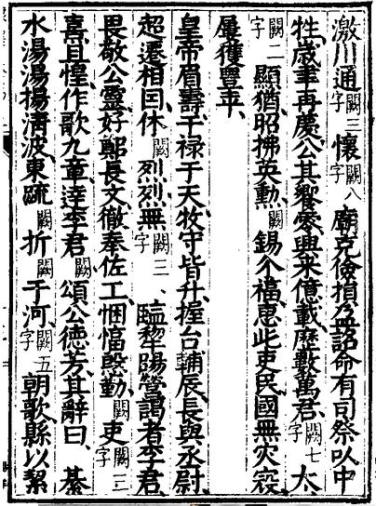 激川通闕三字懷闕八字廟克儉損乃毋詔命有司祭以中
牲歲聿再慶公其饗零興来億載歷數萬君闕七字太
闕二字顯猶昭拂英勳闕錫介福惠此吏民國無灾寇
屢獲豐年
皇帝眉壽千禄于天牧守皆升握台輔辰長與丞尉
超遷相囯休闕烈烈無闕三字臨犂陽營謁者李君
畏敬公靈好鄭長文徹奉佐工悃愊殷勤闕吏闕三字
喜且惶作歌九章達李君闕頌公徳芳其辭曰綦
水湯湯揚清波東疏闕折闕于河闕五字朝歌縣以絜